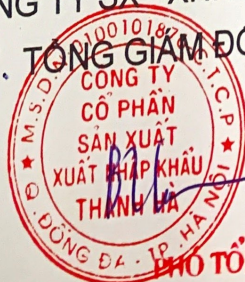 TỔNG GIÁM ĐỐ
M.S.D
T.C.P
CÔNG TY
CỔ PHẦN
SẢN XUẤT
XUẤT NHẬP KHẨU
THANH HÀ
Q. ĐỐNG ĐA - TP. HÀ NỘI
PHÓ TỔ